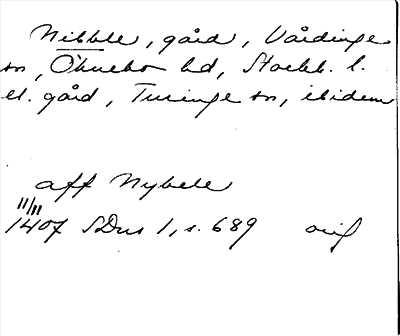 Nibble, gård, Vårdinge
sn, Öknebo hd, Stockh. l.
el. gård, Turinge sn, ibidem
aff Nybele
11/11
1407 SDns 1, s. 689 orig